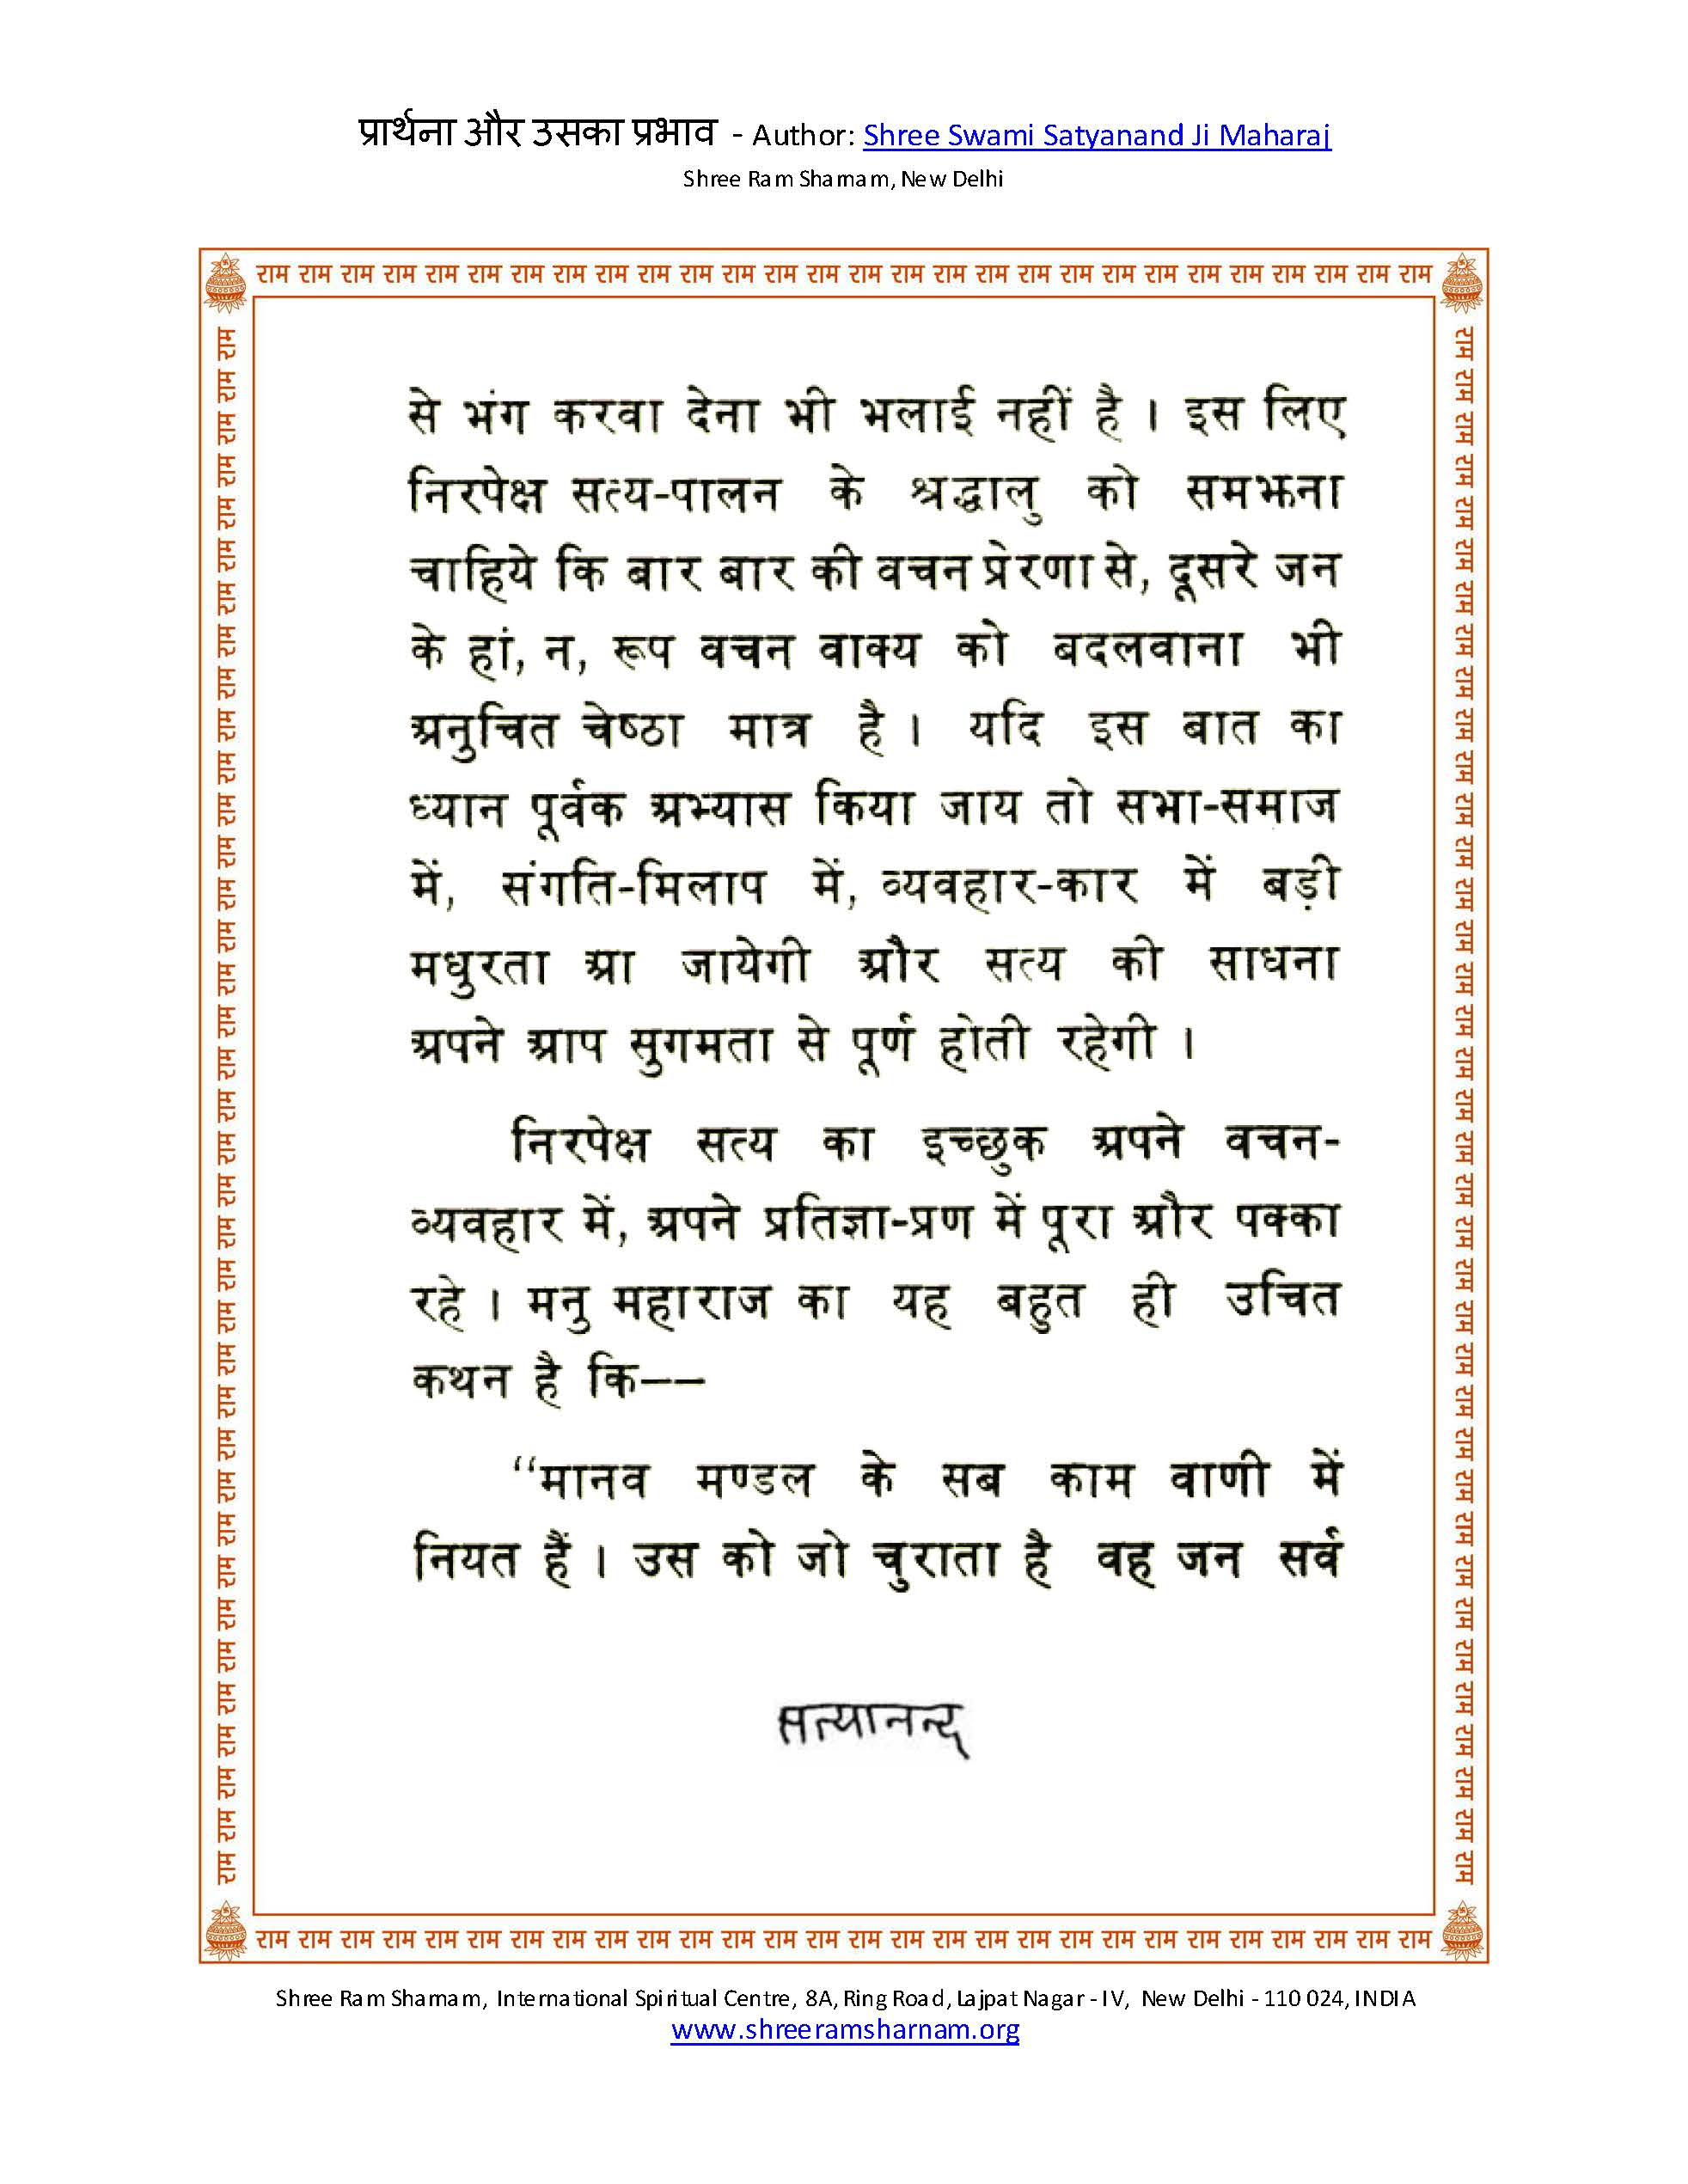 प्रार्थना और उसका प्रभाव - Author: Shree Swami Satyanand Ji Maharaj
Shree Ram Sharnam, New Delhi
राम राम राम राम राम राम राम राम राम राम राम राम राम राम राम राम राम राम राम राम राम राम राम राम राम राम राम राम
से भंग करवा देना भी भलाई नहीं है । इस लिए
निरपेक्ष सत्य-पालन के श्रद्धालु को समझना
चाहिये कि बार बार की वचन प्रेरणा से, दूसरे जन
के हां, न, रूप वचन वाक्य को बदलवाना भी
अनुचित चेष्ठा मात्र है । यदि इस बात का
ध्यान पूर्वक अभ्यास किया जाय तो सभा-समाज
में, संगति-मिलाप में, व्यवहार-कार में बड़ी
मधुरता आ जायेगी और सत्य की साधना
अपने आप सुगमता से पूर्ण होती रहेगी ।
निरपेक्ष सत्य का इच्छुक अपने वचन-
व्यवहार में, अपने प्रतिज्ञा-प्रण में पूरा और पक्का
रहे । मनु महाराज का यह बहुत ही उचित
कथन है कि--
“मानव मण्डल के सब काम वाणी में
नियत हैं । उस को जो चुराता है वह जन सर्व
सत्यानन्द
राम राम राम राम राम राम राम राम राम राम राम राम राम राम राम राम राम राम राम राम राम राम राम राम राम राम राम राम
Shree Ram Sharnam, International Spiritual Centre, 8A, Ring Road, Lajpat Nagar - IV, New Delhi - 110 024, INDIA
www.shreeramsharnam.org